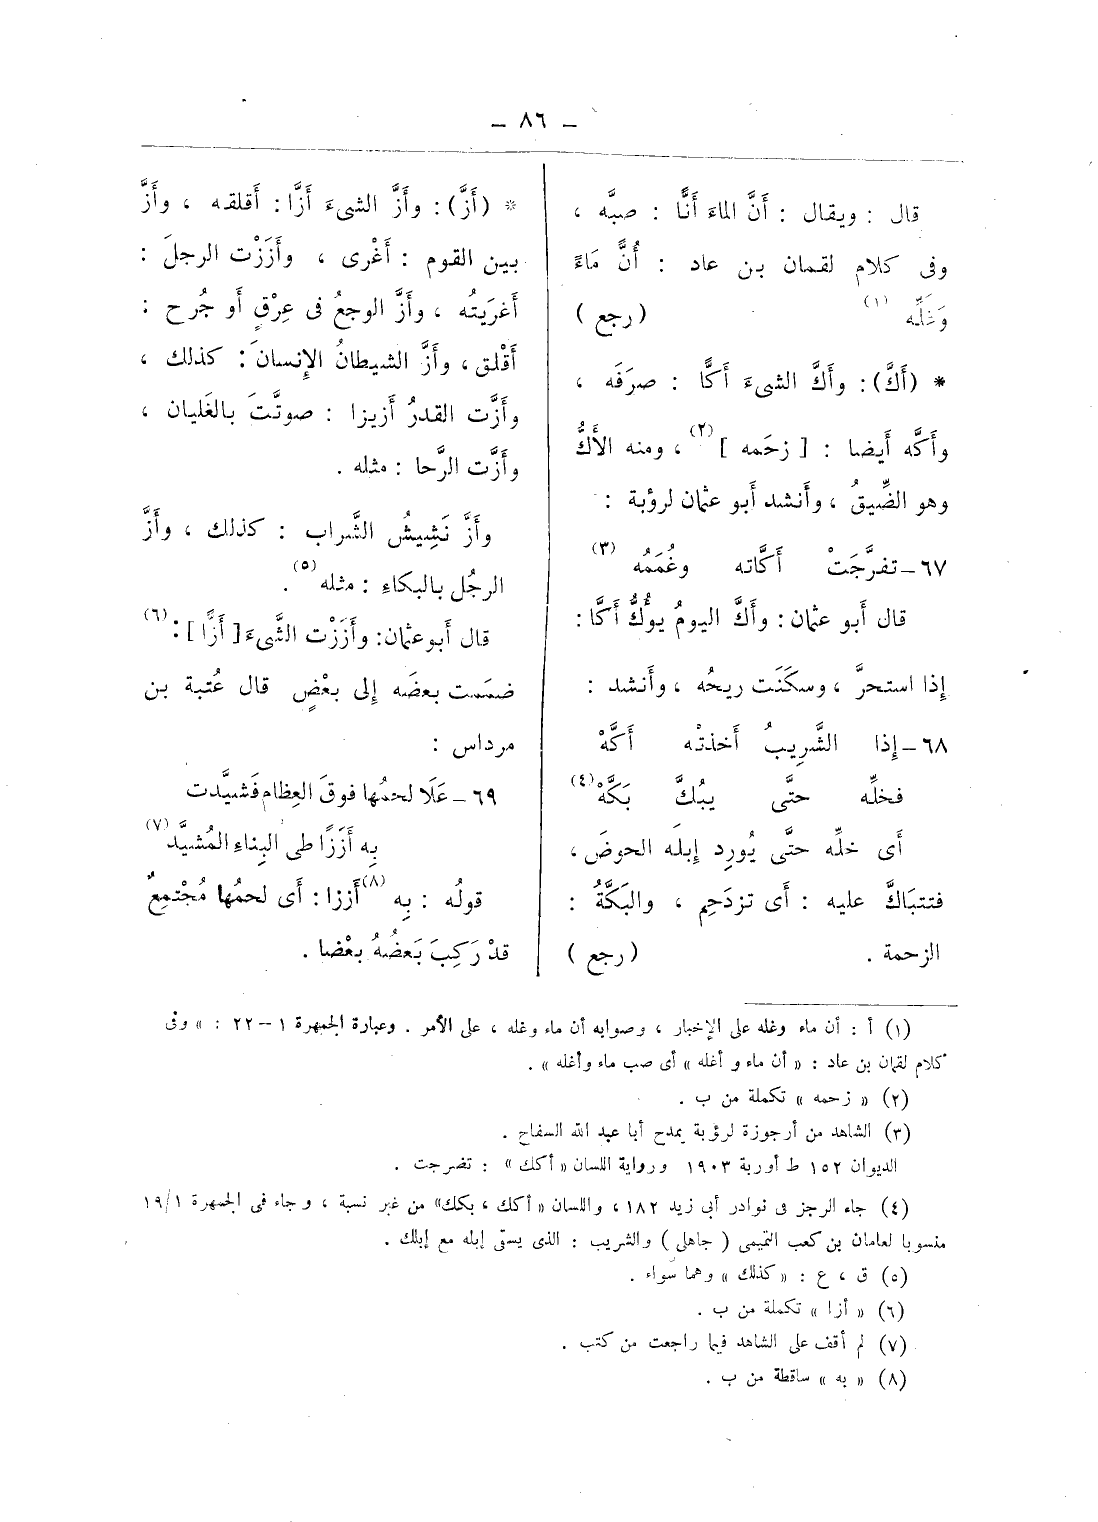 – ٨٦ –
قال : ويقال : أَنَّ الماءَ أَنًّا : صبَّه ،
وفى كلام لقمان بن عاد : أُنَّ مَاءً
وَغَلِّه (١) ( رجع )
* (أَكَّ): وأَكَّ الشىءَ أَكًّا : صرَفَه ،
وأَكَّه أَيضا : [ زحَمه ] (٢) ، ومنه الأَكُّ
وهو الضِّيقُ ، وأَنشد أَبو عثمان لرؤبة :
٦٧ـ تفرَّجَتْ أَكَّاته وغُمَمُه (٣)
قال أَبو عثمان : وأَكَّ اليومُ يؤُكُّ أَكًّا :
إِذا استحرَّ ، وسكَنَت ريحُه ، وأَنشد :
٦٨ـ إِذا الشَّرِيبُ أَخذتْه أَكَّهْ
فخلِّه حتَّى يبُكَّ بَكَّهْ (٤)
أَى خلِّه حتَّى يُورِد إِبلَه الحوضَ ،
فتتبَاكَّ عليه : أَى تزدَحِم ، والبَكَّةُ :
الزحمة . ( رجع )
* (أَزَّ): وأَزَّ الشىءَ أَزًّا : أَقلقه ، وأَزَّ
بين القوم : أَغْرى ، وأَزَزْت الرجلَ :
أَغرَيتُه ، وأَزَّ الوجعُ فى عِرْقٍ أَو جُرح :
أَقْلق ، وأَزَّ الشيطانُ الإِنسانَ : كذلك ،
وأَزَّت القدرُ أَزيزا : صوتَّتَ بالغَليان ،
وأَزَّت الرَّحا : مثله .
وأَزَّ نَشِيشُ الشَّراب : كذلك ، وأَزَّ
الرجُل بالبكاءِ : مثله (٥) .
قال أَبو عثمان: وأَزَزْت الشَّىءَ [ أَزًّا ] (٦) :
ضمَمت بعضَه إِلى بعْضٍ قال عُتبة بن
مرداس :
٦٩ ـ عَلَا لحمُها فوقَ العِظامِ فَشيَّدت
بِه أَزَزًا طى البِناءِ المُشيَّد (٧)
قولُه : بِه (٨) أَززا : أَى لحمُها مُجْتمِعٌ
قدْ رَكِبَ بَعضُهُ بعْضا .
(١) أ : أن ماء وغله على الإخبار ، وصوابه أن ماء وغله ، على الأمر . وعبارة الجمهرة ١ – ٢٢ : » وفى
كلام لقمان بن عاد : « أن ماء و أغله » أى صب ماء وأغله » .
(٢) « زحمه » تكملة من ب .
(٣) الشاهد من أرجوزة لرؤبة يمدح أبا عبد الله السفاح .
الديوان ١٥٢ ط أوربة ١٩٠٣ ورواية اللسان « أكك » : تضرجت .
(٤) جاء الرجز فى نوادر أبى زيد ١٨٢ ، واللسان « أكك ، بكك » من غير نسبة ، وجاء فى الجمهرة ١٩/١
منسوبا لعامان بن كعب التميمى ( جاهلى ) والشريب : الذى يسقى إبله مع إبلك .
(٥) ق ، ع : « كذلك » وهما سواء .
(٦) « أزا » تكملة من ب .
(٧) لم أقف على الشاهد فيما راجعت من كتب .
(٨) « به » ساقطة من ب .